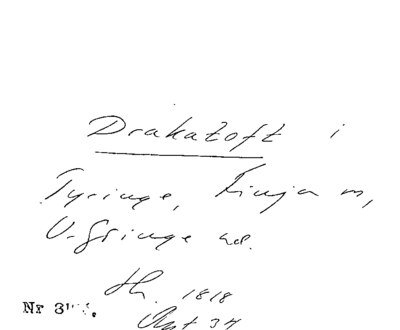 Drakatoft i
Tyringe, Finja m,
V. Göinge hd.
1818
Nr 3